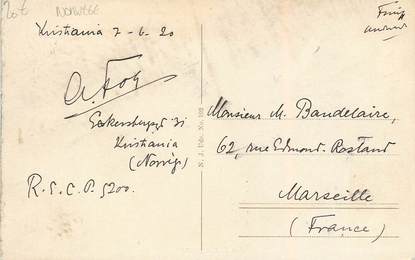 20€
NORVEGE
Kristiania 7-6-20
Kristiania
(Norvège)
R.S.C.P. 5200.
N. J. No. 102
Monsieur M. Baudelaire,
62, rue Edmond-Rostand
Marseille
(France)